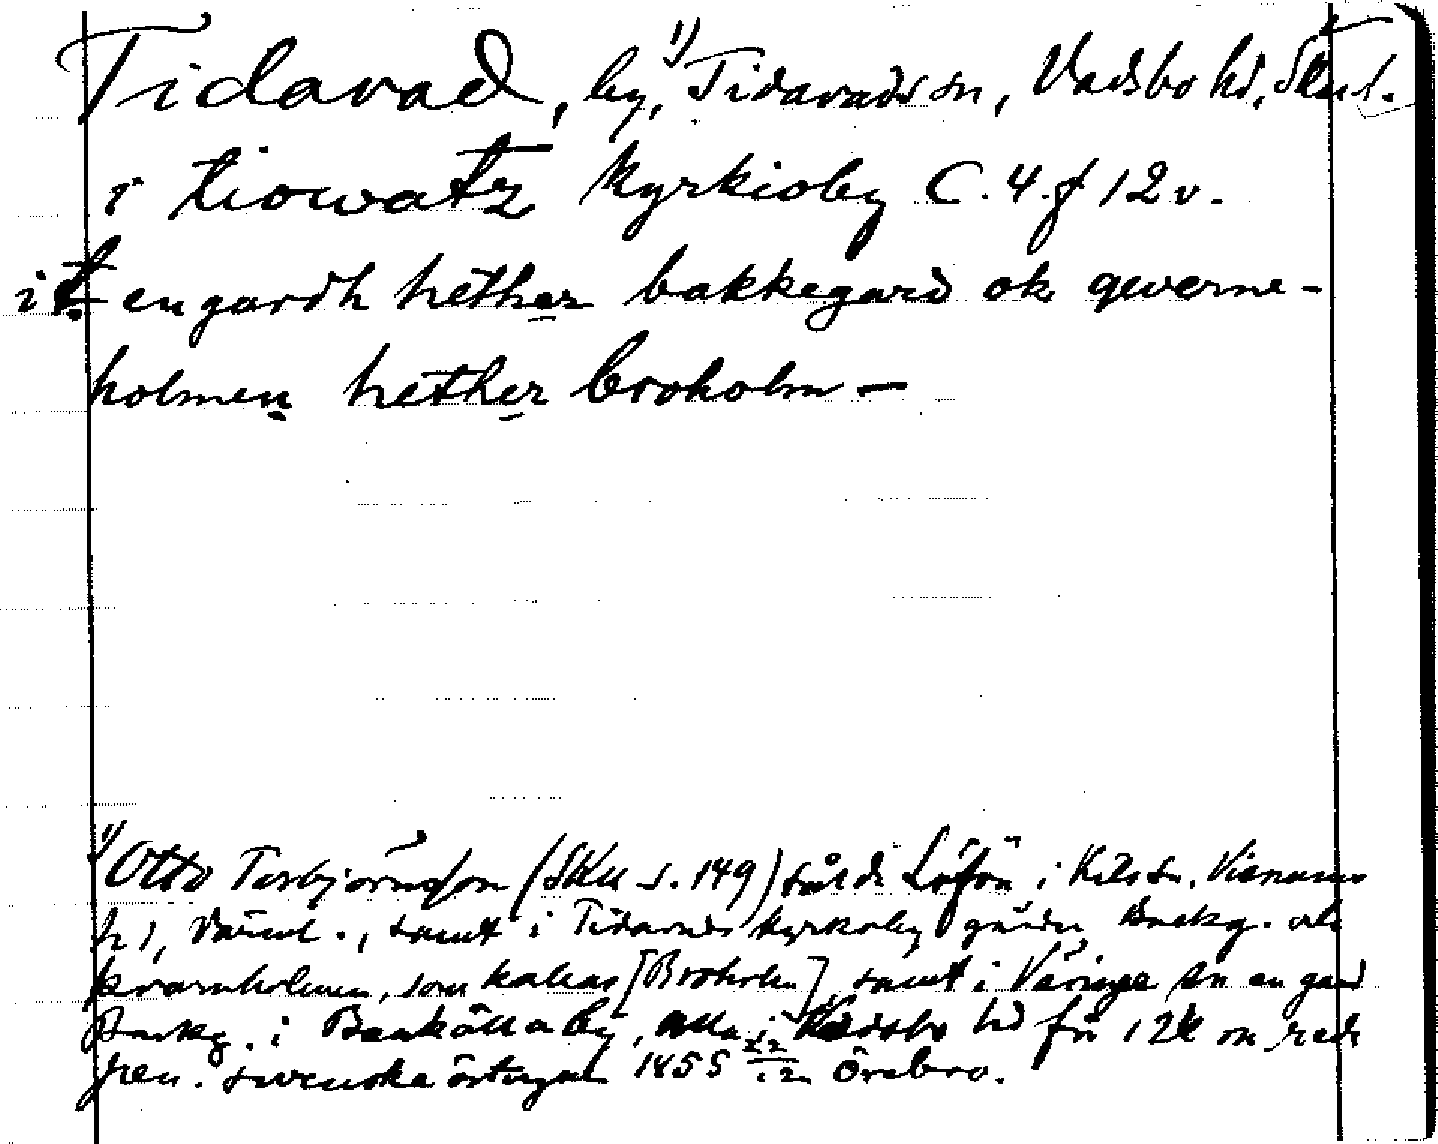 Tidavad, by, 1) Tidavads sn, Vadsbo hd, Skarab.
i tiowatz kyrkioby C. 4 f 12 v.
it en gardh hether bakkegard ok qwerne-
holmen hether broholm —
1) Otto Torbjörnsson (SKU s. 149) sålde Löfön i Kils sn, Visnums
hd, Värml., samt i Tidavads kyrkoby gården Backg. och
kvarnholmen, som kallas [Broholm] samt i Väringe sn en gård
Backg. i by, alla i Vadsbo hd för 12 k
pen. svenska örtugar 1455 22/12 Örebro.